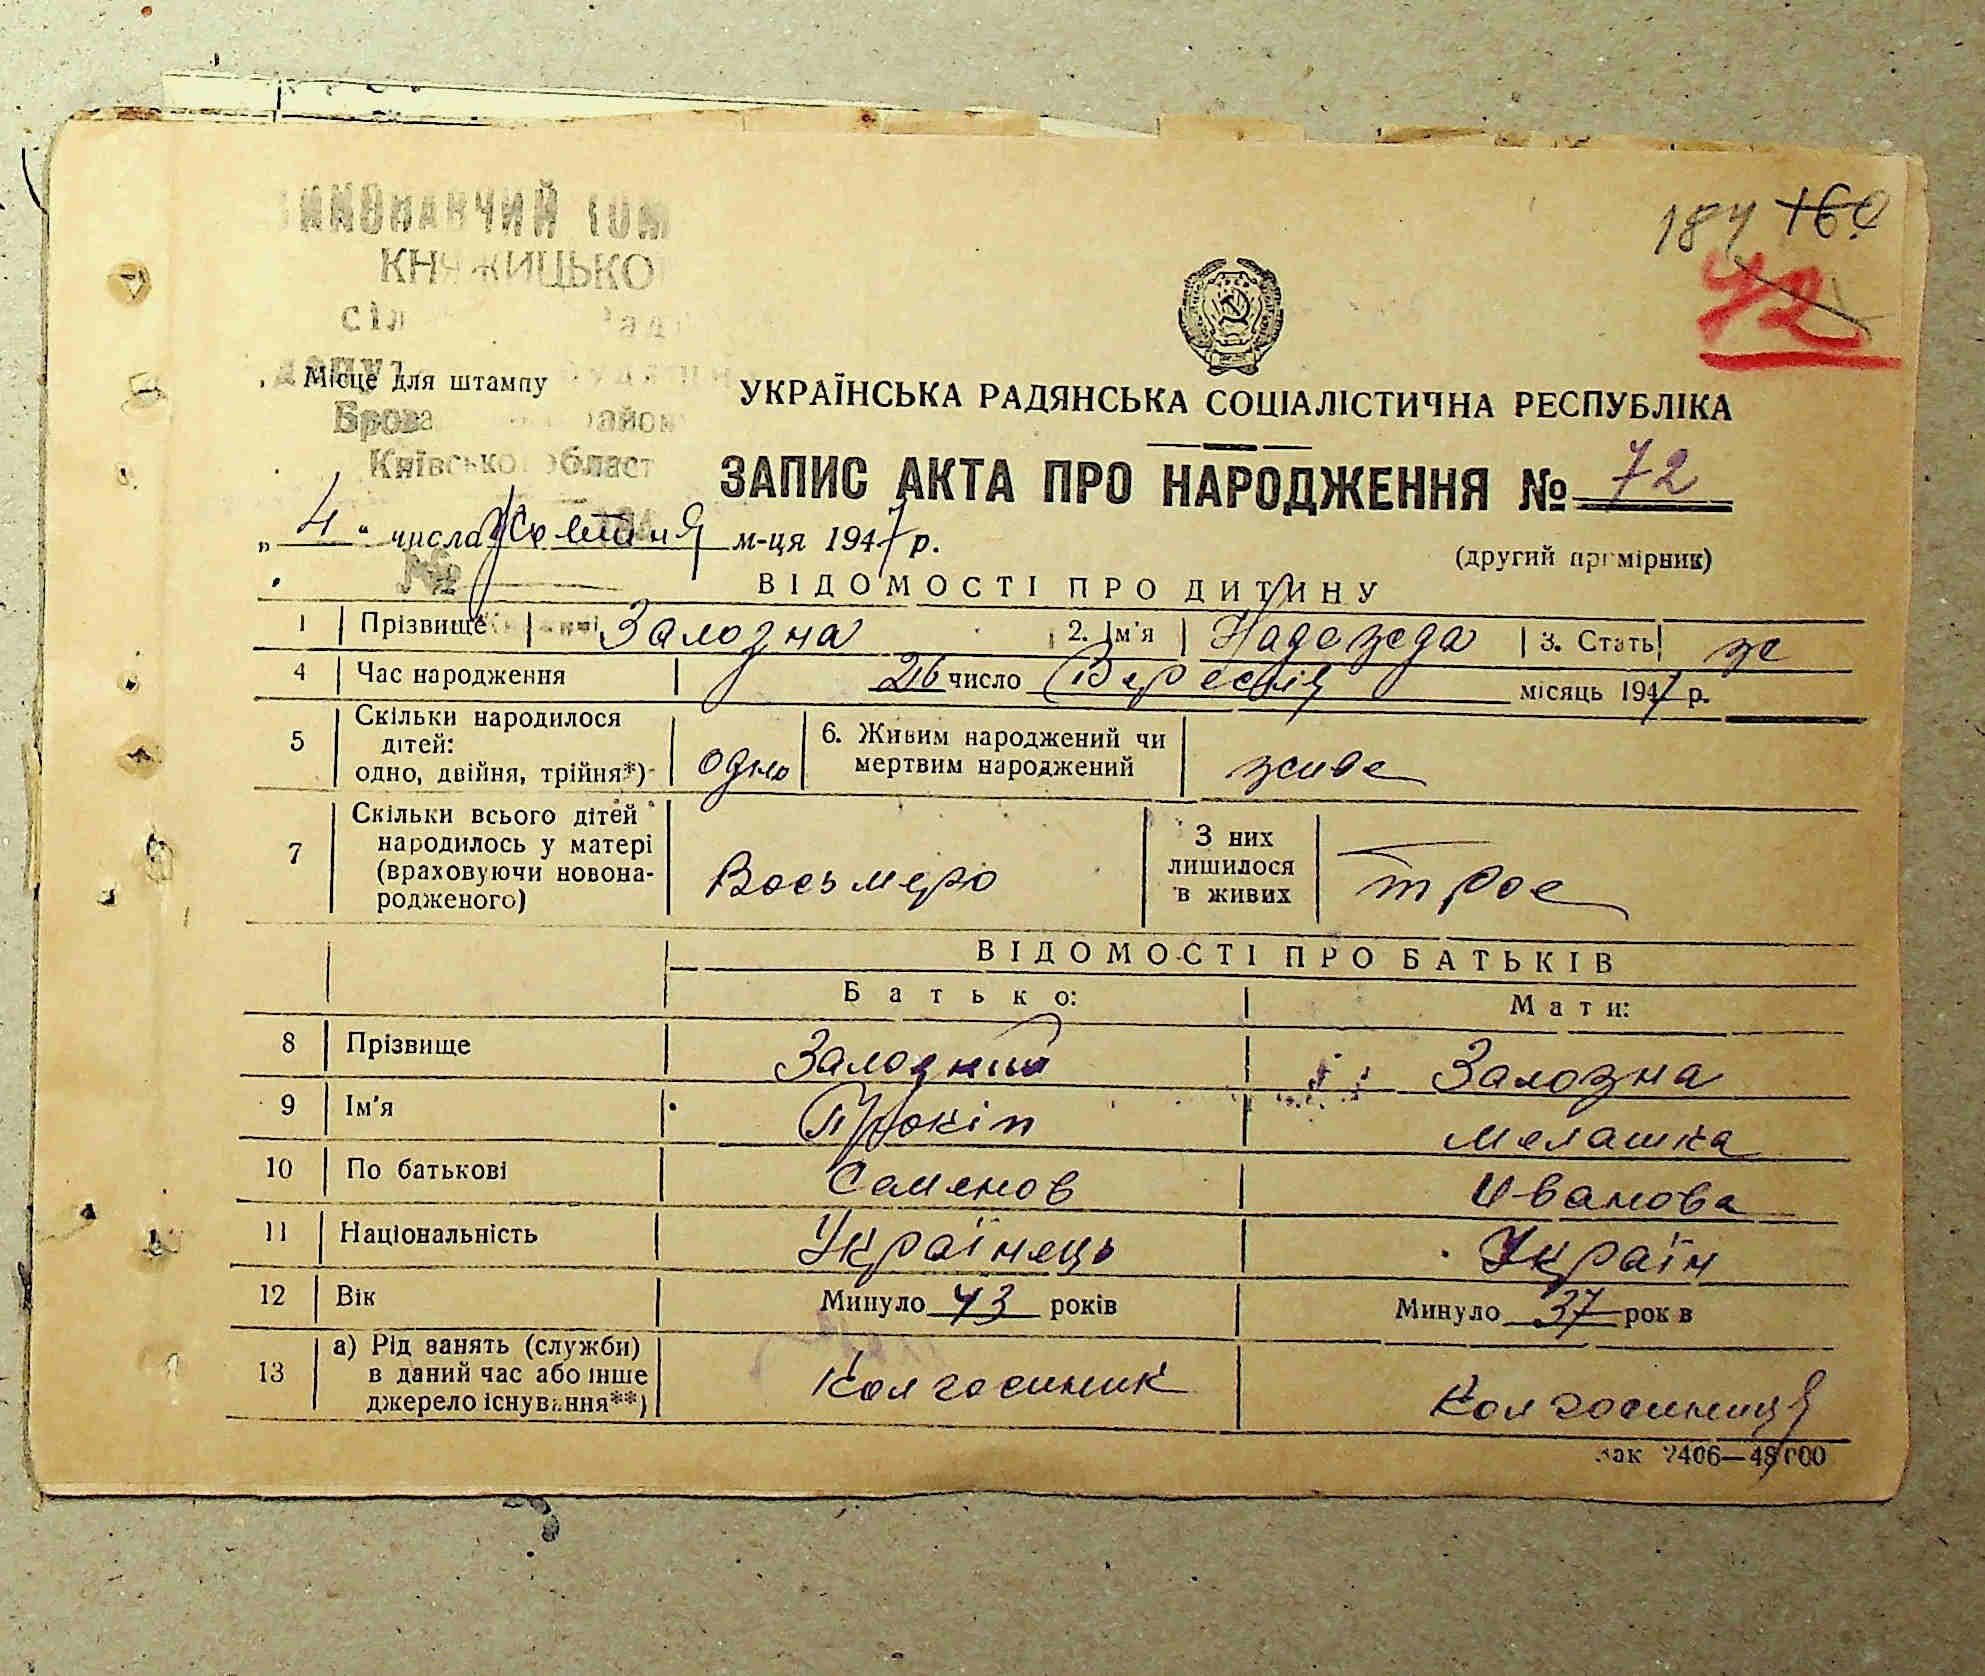 184 160
72
КНЯЖИЦЬКО
Місце для штампу
Київсько області
УКРАЇНСЬКА РАДЯНСЬКА СОЦІАЛІСТИЧНА РЕСПУБЛІКА
ЗАПИС АКТА ПРО НАРОДЖЕННЯ № 72
„4“ числа Жовтня м-ця 1947 р.
(другий примірник)
№
ВІДОМОСТІ ПРО ДИТИНУ
1 Прізвище Залозна 2. Ім'я Надежда 3. Стать ж
4 Час народження 26 число Вересня місяць 1947 р.
5 Скільки народилося дітей: одно, двійня, трійня*) одно 6. Живим народжений чи мертвим народжений живе
7 Скільки всього дітей народилось у матері (враховуючи новонародженого) Восьмеро З них лишилося в живих трое
ВІДОМОСТІ ПРО БАТЬКІВ
Батько: Мати:
8 Прізвище Залозний Залозна
9 Ім'я Прокіп Мелашка
10 По батькові Семенов Иванова
11 Національність Українець Україн
12 Вік Минуло 43 років Минуло 37 років
13 а) Рід занять (служби) в даний час або інше джерело існування**) Колгосиник Колгосиниця
Зак 2406—45000